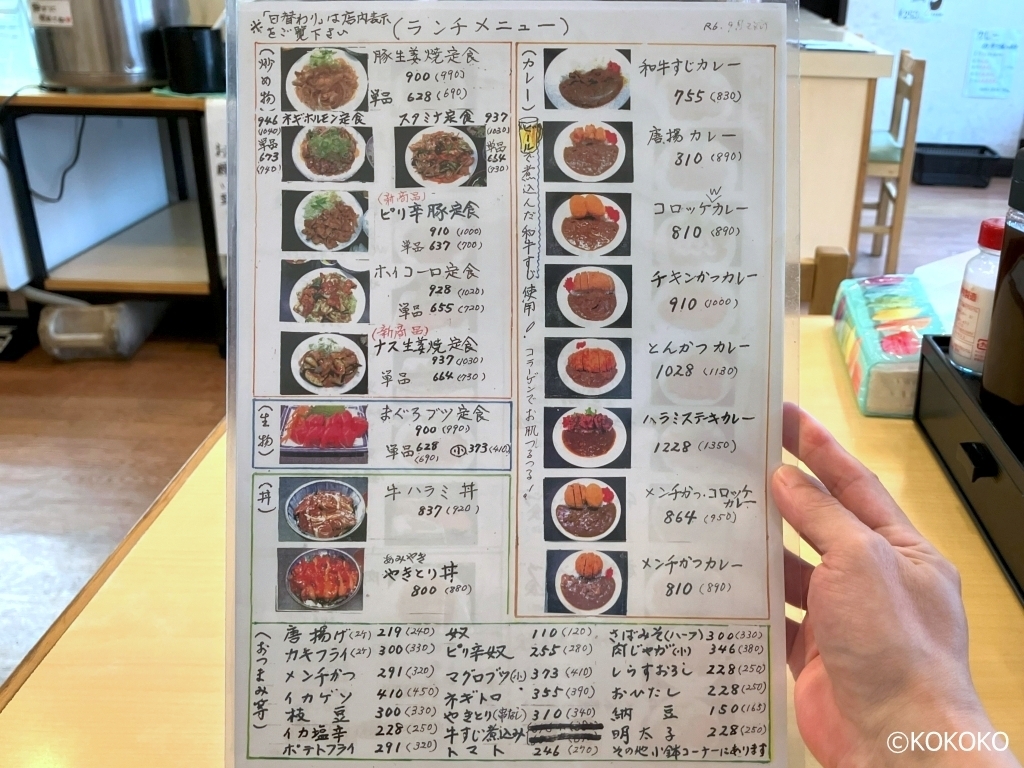 ※「日替わり」は店内表示
をご覧下さい
(ランチメニュー)
(炒め物)
豚生姜焼定食
900 (990)
単品 628 (690)
ネギホルモン定食
946
(1040)
単品
673
(740)
スタミナ定食 937
(1030)
単品
664
(730)
(新商品)
ピリ辛豚定食
910 (1000)
単品 637 (700)
ホイコーロ定食
928 (1020)
単品 655 (720)
(新商品)
ナス生姜焼定食
937 (1030)
単品 664 (730)
(生物)
まぐろブツ定食
900 (990)
単品 628 小 373 (410)
(690)
(丼)
牛ハラミ丼
837 (920)
あみやき
やきとり丼
800 (880)
(カレー)
ビールで煮込んだ和牛すじ使用!
コラーゲンでお肌つるつる!
和牛すじカレー
755 (830)
唐揚カレー
810 (890)
W
コロッケカレー
810 (890)
チキンかつカレー
910 (1000)
とんかつカレー
1028 (1130)
ハラミステキカレー
1228 (1350)
メンチかつ・コロッケ
カレー
864 (950)
メンチかつカレー
810 (890)
(おつまみ等)
唐揚げ(2ケ) 219 (240)
カキフライ(2ケ) 300 (330)
メンチかつ 291 (320)
イカゲソ 410 (450)
枝豆 300 (330)
イカ塩辛 228 (250)
ポテトフライ 291 (320)
奴 110 (120)
ピリ辛奴 255 (280)
マグロブツ(小) 373 (410)
ネギトロ 355 (390)
やきとり(串なし) 310 (340)
牛すじ煮込み
トマト 246 (270)
さばみそ(ハーフ) 300 (330)
肉じゃが(小) 346 (380)
しらすおろし 228 (250)
おひたし 228 (250)
納豆 150 (165)
明太子 228 (250)
その他小鉢コーナーにあります
©KOKOKO